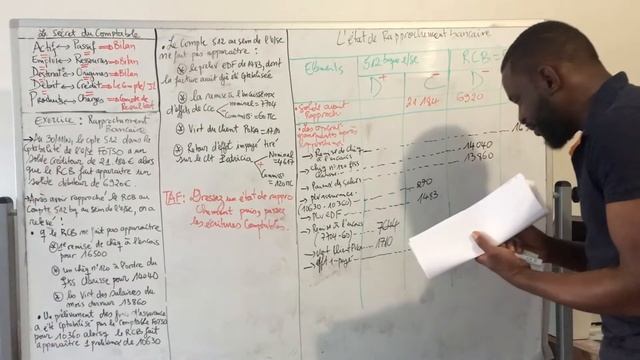 Le Secret du Comptable
Actif ↔ Passif ⇒ Bilan
Emplois ↔ Ressources ⇒ Bilan
Destinat° ↔ Origines ⇒ Bilan
Débit ↔ Crédit ⇒ Le Compte/
Produits ↔ Charges ⇒ Compte de Résultat
EXERCICE : Rapprochement
Bancaire
Au 30/11/N, le cpte 512 dans la
Comptabilité de l'E/se FOTSO a un
solde créditeur de 21 184 € alors
que le RCB fait apparaître un
solde débiteur de 6920 €.
Après avoir rapproché le RCB au
Compte 512 au sein de l'E/se, on a
le RCB ne fait pas apparaître
1 remise de chèq à l'encais
pour 16500
un chèq n°120 à l'ordre du
pour 14040
les Virt des salaires du
mois dernier 13860
Un prélèvement des d'assurance
a été cptabilisé par le comptable FOTSO
pour 10360 alors que le RCB fait
apparaître 1 problème de 10630
Le Compte 512 au sein de l'E/se
ne fait pas apparaître :
le prélev EDF de 1453, dont
la facture avait déjà été cptabilisée
la remise à l'encaissement
d'effets de Cce nominal = 7704
Commiss° = 60 TTC
Virt du client Paka = 1710
Retour d'effet impayé tiré
sur le clt Patricia
Nominal
Commiss
= 120 TTC
TAF : Dressez un état de rappro
chement puis passez
les écritures Comptables.
L'état de Rapprochement bancaire
Eléments
512 Bque e/se
RCB =
D+ C− D−
Solde avant
Rapproch
21 184 6920
Remise de chèq
à l'encais
chèq n°120
14040
13860
Paimt des salaires
ass
(10630 - 10360) 270
plv EDF 1453
Remise à l'encais
(7704-60) 7644
vrmt Client Paka 1710